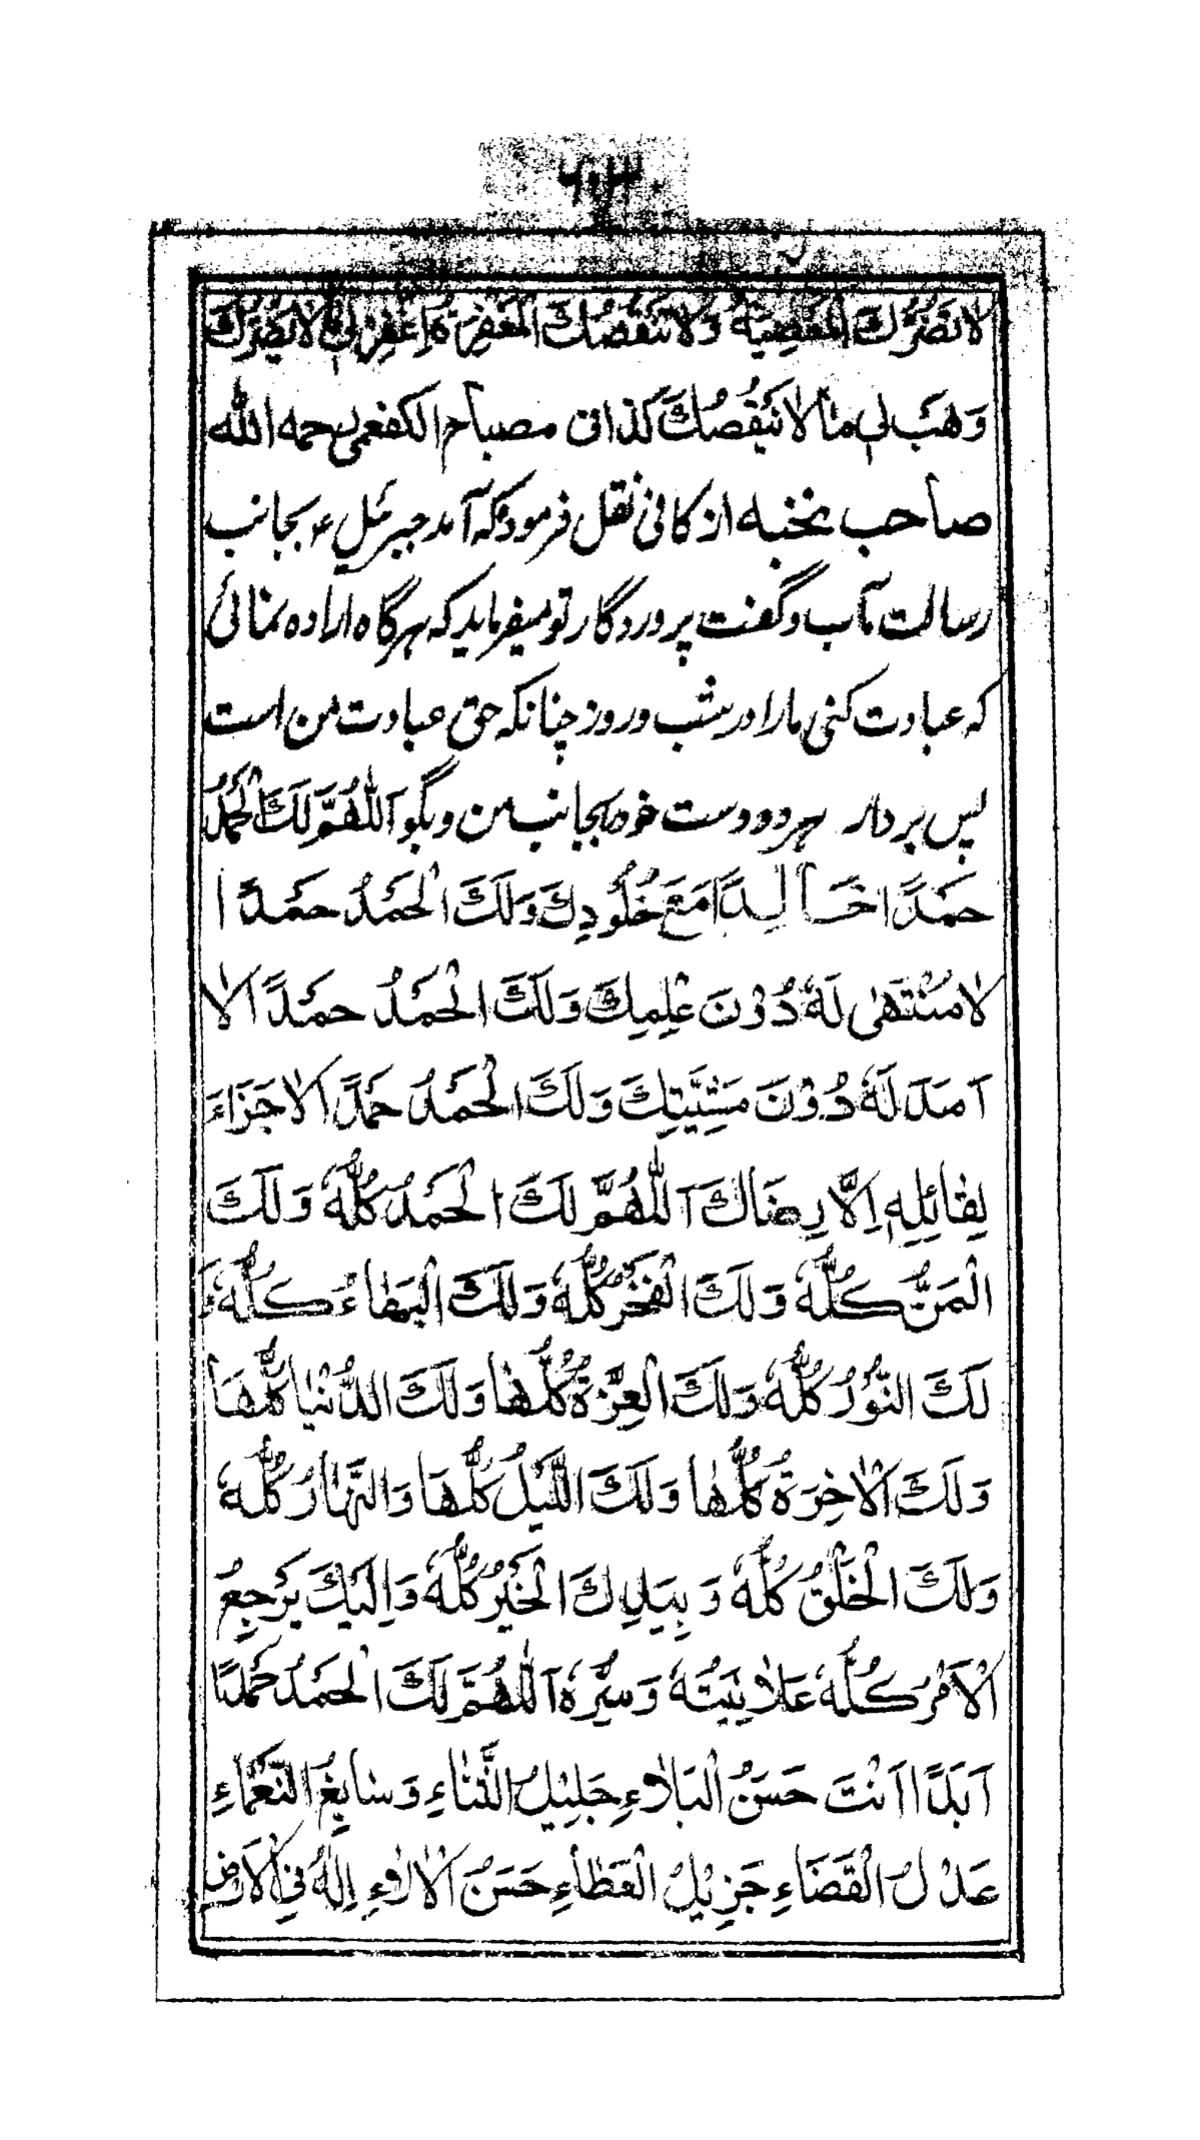 ۶۰۳
لَا تَضُرُّكَ الْمَعْصِيَةُ وَلَا تَنْقُصُكَ الْمَغْفِرَةُ اِغْفِرْ لِي لَا يَضُرُّكَ
وَهَبْ لِي مَا لَا يَنْقُصُكَ كذا فى مصباح الكفعمى رحمه الله
صاحب نخبه از كافى نقل فرموده كه آمد جبرئيل ع بجانب
رسالت مآب و گفت پروردگار تو ميفرمايد كه هرگاه اراده نمائى
كه عبادت كنى مارا در شب و روز چنانكه حق عبادت من است
پس بردار هر دو دست خود بجانب من و بگو اَللّٰهُمَّ لَكَ الْحَمْدُ
حَمْدًا خَالِدًا مَعَ خُلُودِكَ وَلَكَ الْحَمْدُ حَمْدًا
لَا مُنْتَهٰى لَهُ دُوْنَ عِلْمِكَ وَلَكَ الْحَمْدُ حَمْدًا لَا
اَمَدَ لَهُ دُوْنَ مَشِيَّتِكَ وَلَكَ الْحَمْدُ حَمْدًا لَا جَزَاءَ
لِقٰائِلِهِ اِلَّا رِضَاكَ اَللّٰهُمَّ لَكَ الْحَمْدُ كُلُّهُ وَلَكَ
الْمَنُّ كُلُّهُ وَلَكَ الْفَخْرُ كُلُّهُ وَلَكَ الْبَهٰاءُ كُلُّهُ وَ
لَكَ النُّوْرُ كُلُّهُ وَلَكَ الْعِزَّةُ كُلُّهٰا وَلَكَ الدُّنْيٰا كُلُّهَا
وَلَكَ الْاٰخِرَةُ كُلُّهٰا وَلَكَ اللَّيْلُ كُلُّهَا وَالنَّهٰارُ كُلُّهُ
وَلَكَ الْخَلْقُ كُلُّهُ وَبِيَدِكَ الْخَيْرُ كُلُّهُ وَاِلَيْكَ يَرْجِعُ
الْاَمْرُ كُلُّهُ عَلٰانِيَتُهُ وَسِرُّهُ اَللّٰهُمَّ لَكَ الْحَمْدُ حَمْدًا
اَبَدًا اَنْتَ حَسَنُ الْبَلٰاءِ جَلِيْلُ الثَّنٰاءِ وَسٰابِغُ النَّعْمٰاءِ
عَدْلُ الْقَضَاءِ جَزِيْلُ الْعَطٰاءِ حَسَنُ الْاٰلٰاءِ اِلٰهُ فِي الْاَرْضِ